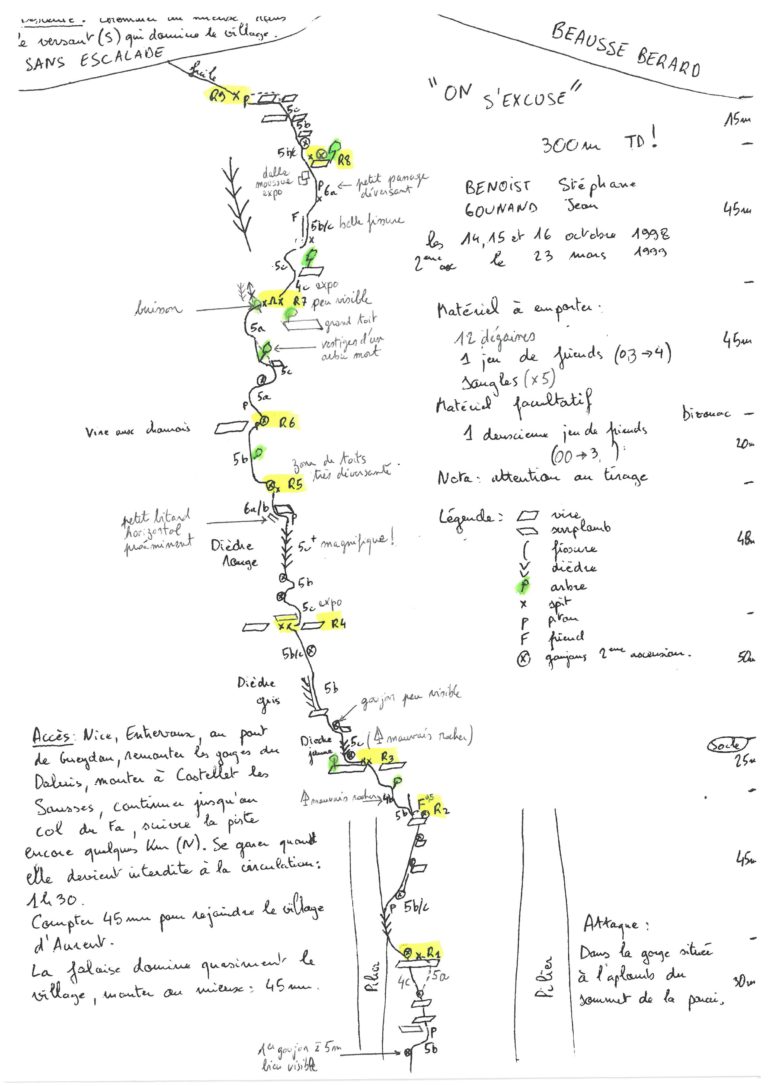 le versant (S) qui domine le village.
SANS ESCALADE
BEAUSSE BERARD
"ON S'EXCUSE"
300m TD!
BENOIST Stéphane
GOUNAND Jean
les 14, 15 et 16 octobre 1998
2eme asc le 23 mars 1999
Matériel à emporter:
12 dégaines
1 jeu de friends (0.3→4)
sangles (x5)
Matériel facultatif
1 deuxieux jeu de friends
(00→3, )
Nota: attention au tirage
Légende:
vire
surplomb
( fissure
dièdre
arbre
x spit
P piton
F friend
goujons 2eme ascension.
15m
45m
45m
bivouac
20m
48m
50m
Socle
25m
45m
30m
facile
R9 x P
5c
5b
5b/c
R8
dalle
moussue
expo
P
6a
petit passage
déversant
F
5b/c belle fissure
5c
4c expo
peu visible
R7
buisson
grand toit
5a
vestiges d'un
arbre mort
5c
5a
P
Vire aux chamois
P
R6
5b
zone de toits
très déversante.
R5
6a/b
P
petit bitard
horizontal
proéminent
Dièdre
rouge
5c+ magnifique!
5b
5c expo
R4
5b/c
Dièdre
gris
5b
goujon peu visible
Dièdre
jaune
5c (mauvais rocher)
R3
mauvais rocher
4b
5b
F
R2
P
5b/c
R1
4c
5a
P
5b
1er goujon à 5m
bien visible
Pilier
Pilier
Accès: Nice, Entrevaux, au pont
de Gueydan, remonter les gorges du
Daluis, monter à Castellet les
Sausses, continuer jusqu'au
col du Fa, suivre la piste
encore quelques Km (N). Se garer quand
elle devient interdite à la circulation:
1h30.
Compter 45mn pour rejoindre le village
d'Aurent.
La falaise domine quasiment le
village, monter au mieux: 45mn.
Attaque:
Dans la gorge située
à l'aplomb du
sommet de la paroi.